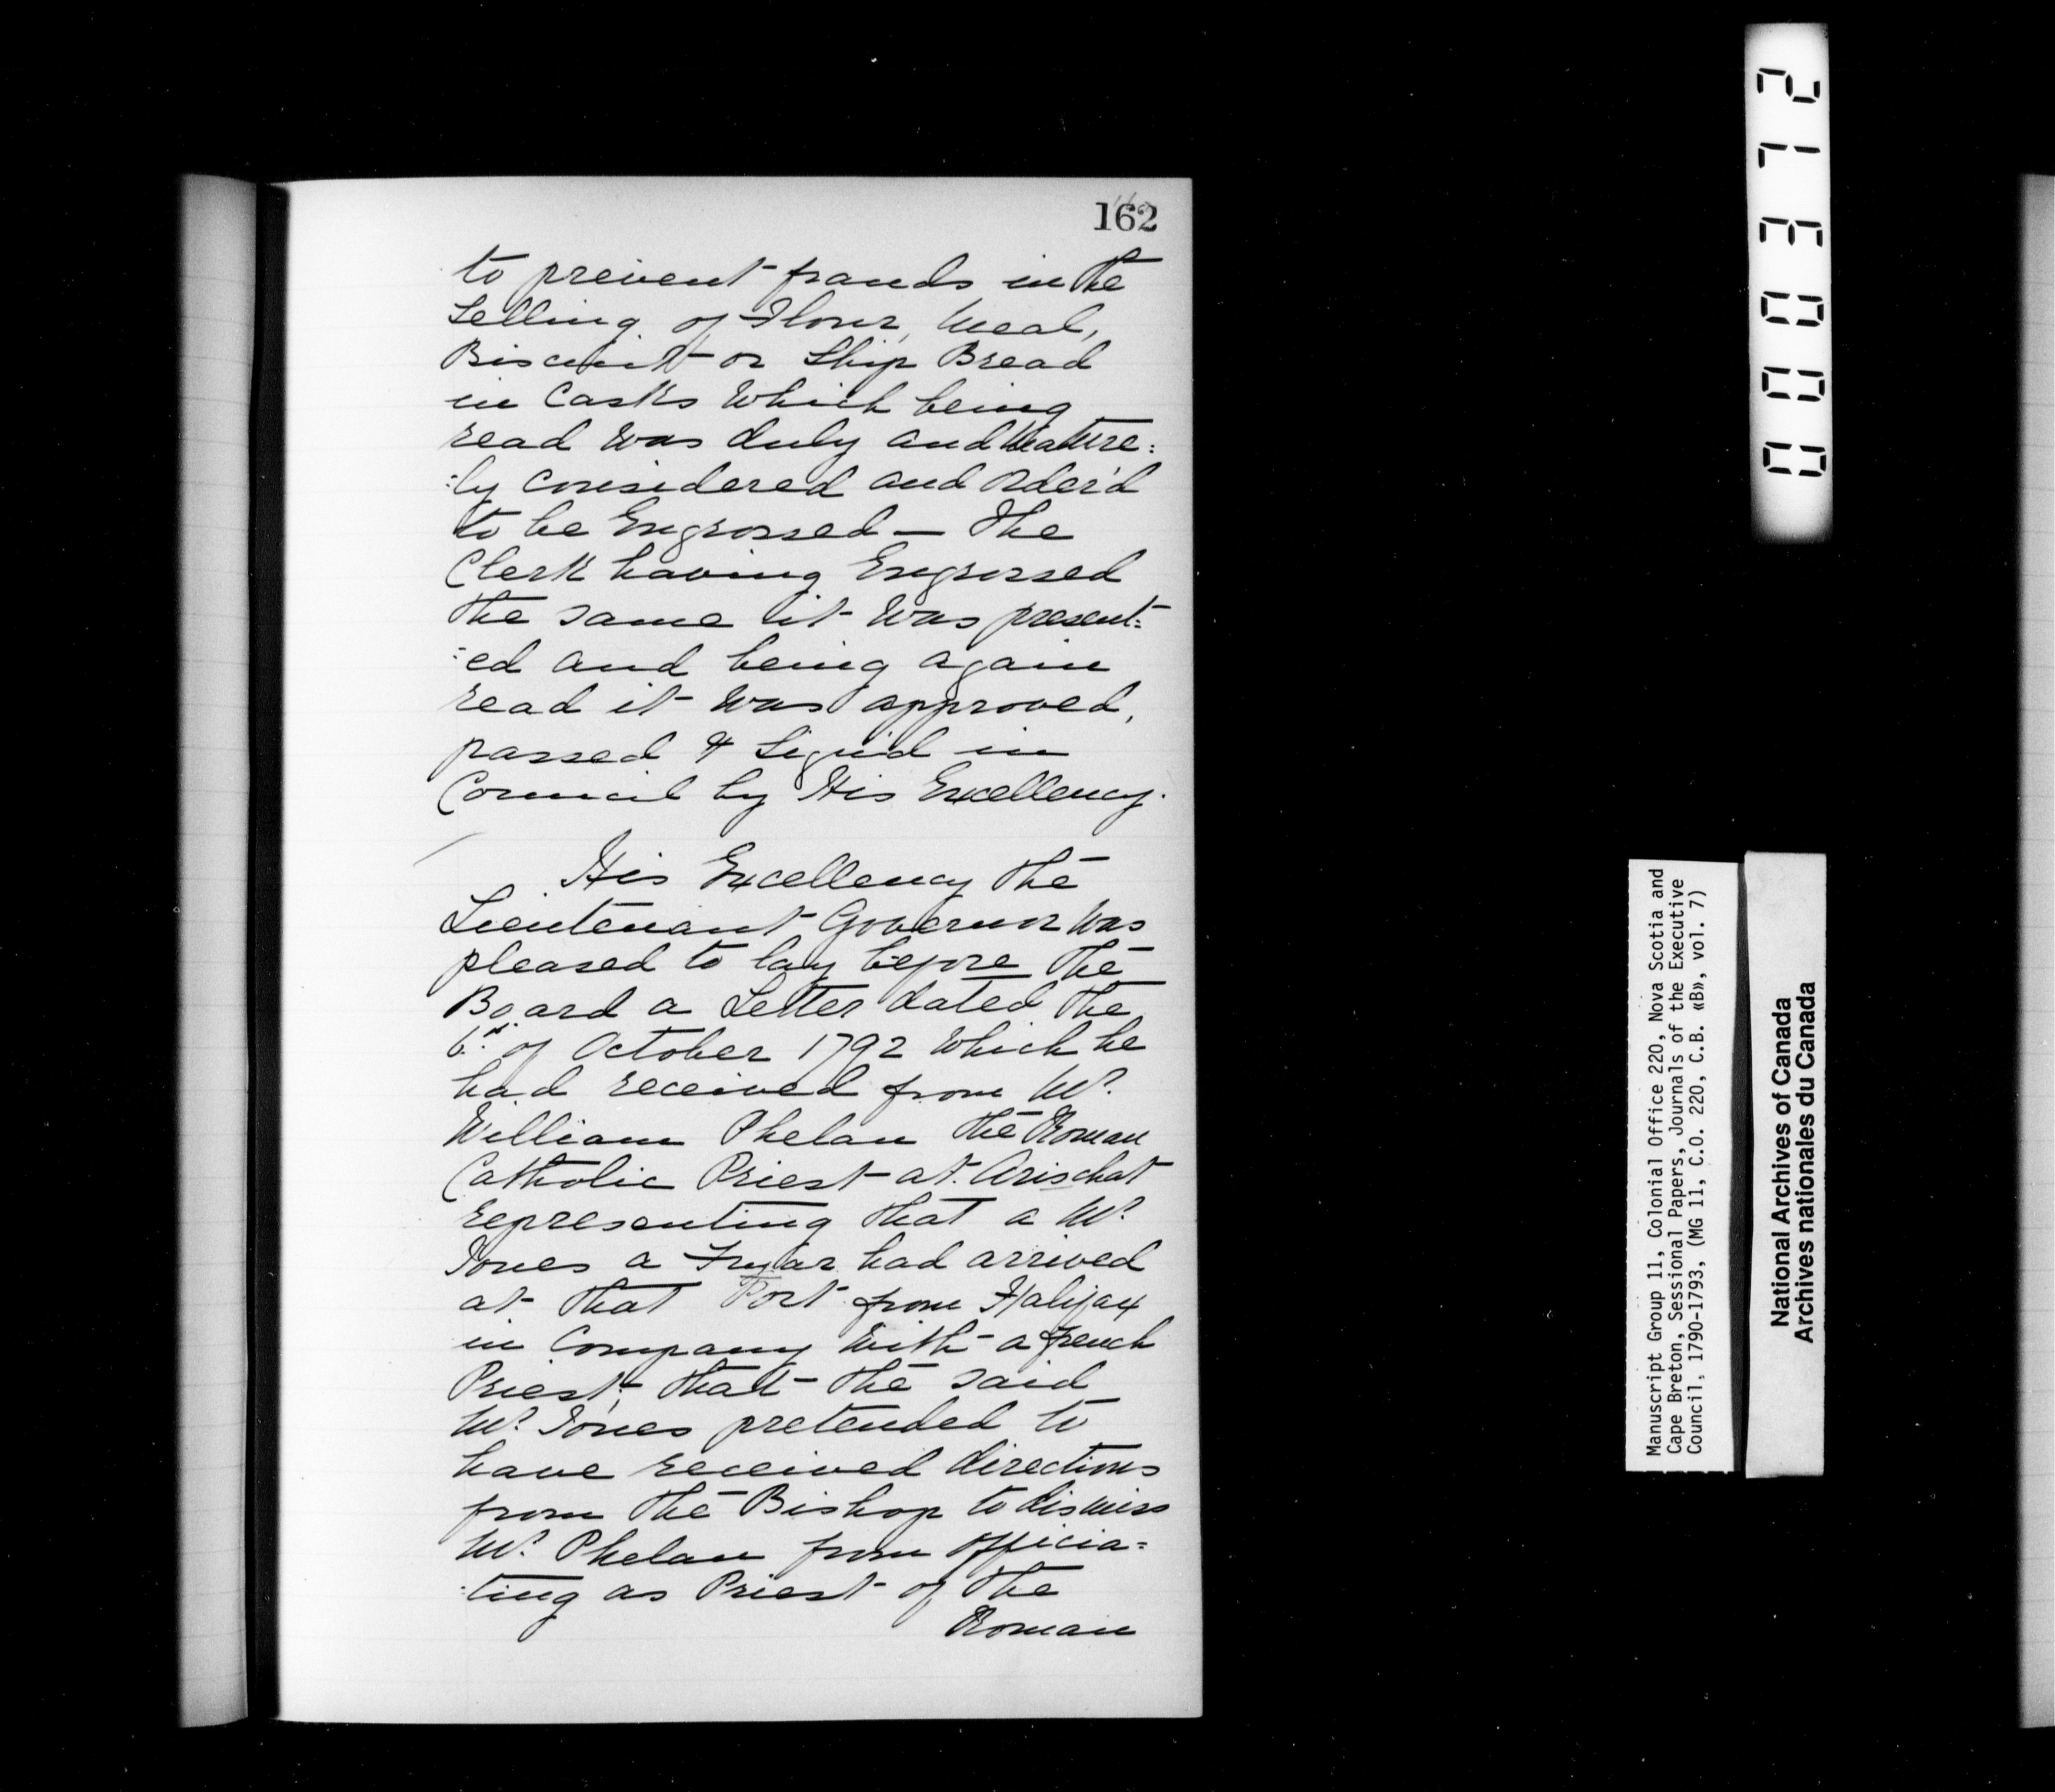 162
to prevent frauds in the
Selling of Flour, Meal,
Biscuit or Ship Bread
in Casks Which being
read was duly and Mature:
:ly considered and Order'd
to be Engrossed — The
Clerk having Engrossed
the same it was present:
:ed and being again
read it was approved,
passed & Sign'd in
Council by His Excellency.
His Excellency the
Lieutenant Governor was
pleased to lay before the
Board a Letter dated the
6th of October 1792 Which he
had received from Mr.
William Phelan the Roman
Catholic Priest at Arischat
representing that a Mr.
Jones a Fryar had arrived
at that Port from Halifax
in Company with a french
Priest; that the said
Mr. Jones pretended to
have received directions
from the Bishop to dismiss
Mr. Phelan from officia:
:ting as Priest of the
Roman
000372
Manuscript Group 11, Colonial Office 220, Nova Scotia and
Cape Breton, Sessional Papers, Journals of the Executive
Council, 1790-1793, (MG 11, C.O. 220, C.B. «B», vol. 7)
National Archives of Canada
Archives nationales du Canada